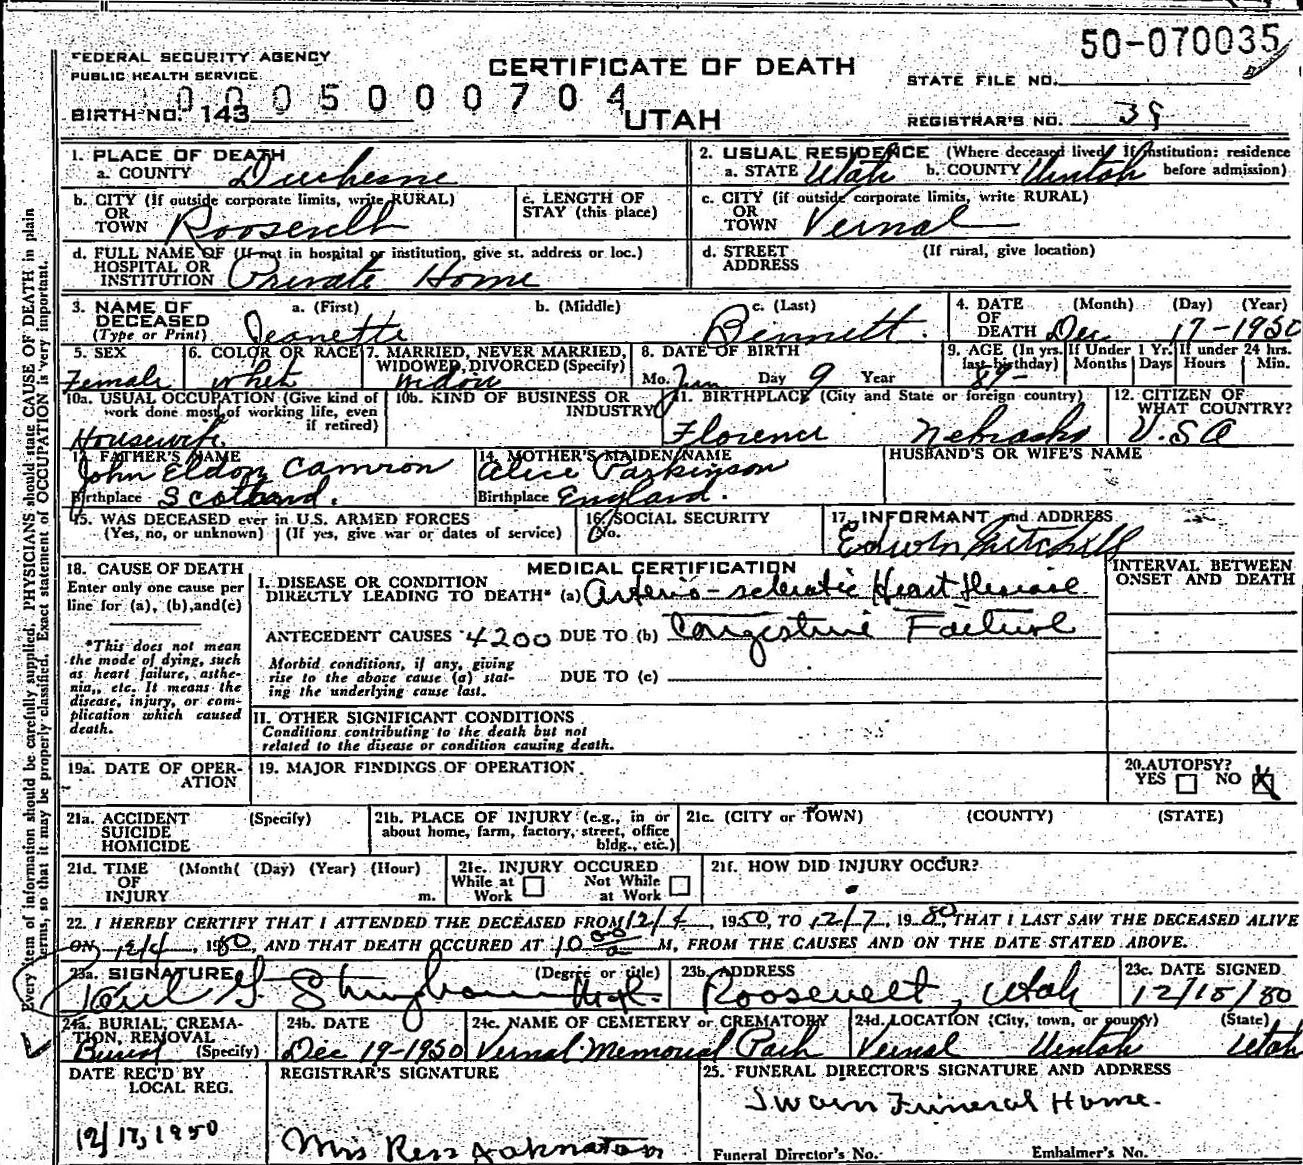 50-070035
FEDERAL SECURITY AGENCY
PUBLIC HEALTH SERVICE
CERTIFICATE OF DEATH
STATE FILE NO.
0005000704
BIRTH NO. 143
UTAH
REGISTRAR'S NO.
1. PLACE OF DEATH
a. COUNTY Duchesne
2. USUAL RESIDENCE (Where deceased lived. If institution: residence before admission)
a. STATE Utah b. COUNTY Uintah
b. CITY (If outside corporate limits, write RURAL)
OR TOWN Roosevelt
c. LENGTH OF STAY (this place)
c. CITY (if outside corporate limits, write RURAL)
OR TOWN Vernal
d. FULL NAME OF (If not in hospital or institution, give st. address or loc.)
HOSPITAL OR INSTITUTION Private Home
d. STREET ADDRESS (If rural, give location)
3. NAME OF DECEASED (Type or Print)
a. (First) Jeanette
b. (Middle)
c. (Last) Bennett.
4. DATE OF DEATH (Month) (Day) (Year)
Dec 17-1950
5. SEX
Female
6. COLOR OR RACE
whit
7. MARRIED, NEVER MARRIED, WIDOWED, DIVORCED (Specify)
Widow
8. DATE OF BIRTH
Mo. Jan Day 9 Year
9. AGE (In yrs. last birthday)
89-
If Under 1 Yr. Months Days
If under 24 hrs. Hours Min.
10a. USUAL OCCUPATION (Give kind of work done most of working life, even if retired)
Housewife
10b. KIND OF BUSINESS OR INDUSTRY
11. BIRTHPLACE (City and State or foreign country)
Florence Nebraska
12. CITIZEN OF WHAT COUNTRY?
USA
13. FATHER'S NAME
John Eldon Camron
Birthplace Scotland.
14. MOTHER'S MAIDEN NAME
Alice Parkinson
Birthplace England.
HUSBAND'S OR WIFE'S NAME
15. WAS DECEASED ever in U.S. ARMED FORCES
(Yes, no, or unknown) (If yes, give war or dates of service)
16. SOCIAL SECURITY
No.
17. INFORMANT and ADDRESS
Edwin Mitchell
18. CAUSE OF DEATH
Enter only one cause per line for (a), (b), and (c)
*This does not mean the mode of dying, such as heart failure, asthenia, etc. It means the disease, injury, or complication which caused death.
MEDICAL CERTIFICATION
INTERVAL BETWEEN ONSET AND DEATH
I. DISEASE OR CONDITION DIRECTLY LEADING TO DEATH* (a) Arterio-sclerotic Heart disease
ANTECEDENT CAUSES 4200 DUE TO (b) Congestive Failure
Morbid conditions, if any, giving rise to the above cause (a) stating the underlying cause last.
DUE TO (c)
II. OTHER SIGNIFICANT CONDITIONS
Conditions contributing to the death but not related to the disease or condition causing death.
19a. DATE OF OPERATION
19. MAJOR FINDINGS OF OPERATION
20. AUTOPSY?
YES NO X
21a. ACCIDENT SUICIDE HOMICIDE (Specify)
21b. PLACE OF INJURY (e.g., in or about home, farm, factory, street, office bldg., etc.)
21c. (CITY or TOWN) (COUNTY) (STATE)
21d. TIME OF INJURY (Month( (Day) (Year) (Hour) m.
21e. INJURY OCCURED
While at Work Not While at Work
21f. HOW DID INJURY OCCUR?
22. I HEREBY CERTIFY THAT I ATTENDED THE DECEASED FROM 12/4, 1950, TO 12/7, 1950, THAT I LAST SAW THE DECEASED ALIVE
ON 12/4, 1950, AND THAT DEATH OCCURED AT 10 00 a M, FROM THE CAUSES AND ON THE DATE STATED ABOVE.
23a. SIGNATURE (Degree or title)
Paul G. Stringham M.D.
23b. ADDRESS
Roosevelt, Utah
23c. DATE SIGNED
12/18/50
24a. BURIAL, CREMATION, REMOVAL (Specify)
Burial
24b. DATE
Dec 19-1950
24c. NAME OF CEMETERY or CREMATORY
Vernal Memorial Park
24d. LOCATION (City, town, or county) (State)
Vernal Uintah Utah
DATE REC'D BY LOCAL REG.
12/17, 1950
REGISTRAR'S SIGNATURE
Mrs Ress Johnston
25. FUNERAL DIRECTOR'S SIGNATURE AND ADDRESS
Swain Funeral Home.
Funeral Director's No. Embalmer's No.
Every item of information should be carefully supplied. PHYSICIANS should state CAUSE OF DEATH in plain
terms, so that it may be properly classified. Exact statement of OCCUPATION is very important.